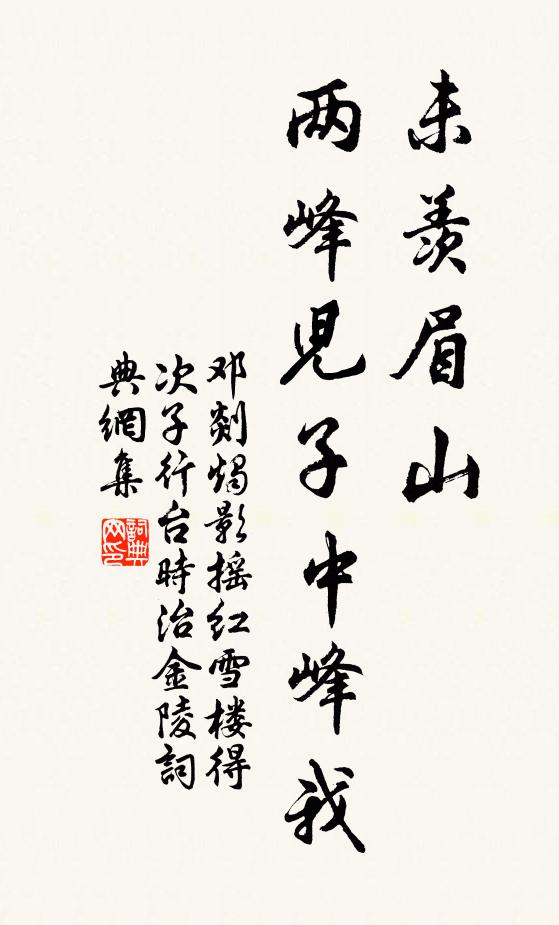 未羡眉山
两峰児子中峰我
邓剡烛影摇红雪楼得
次子行台時治金陵詞
典網集
詞典网印